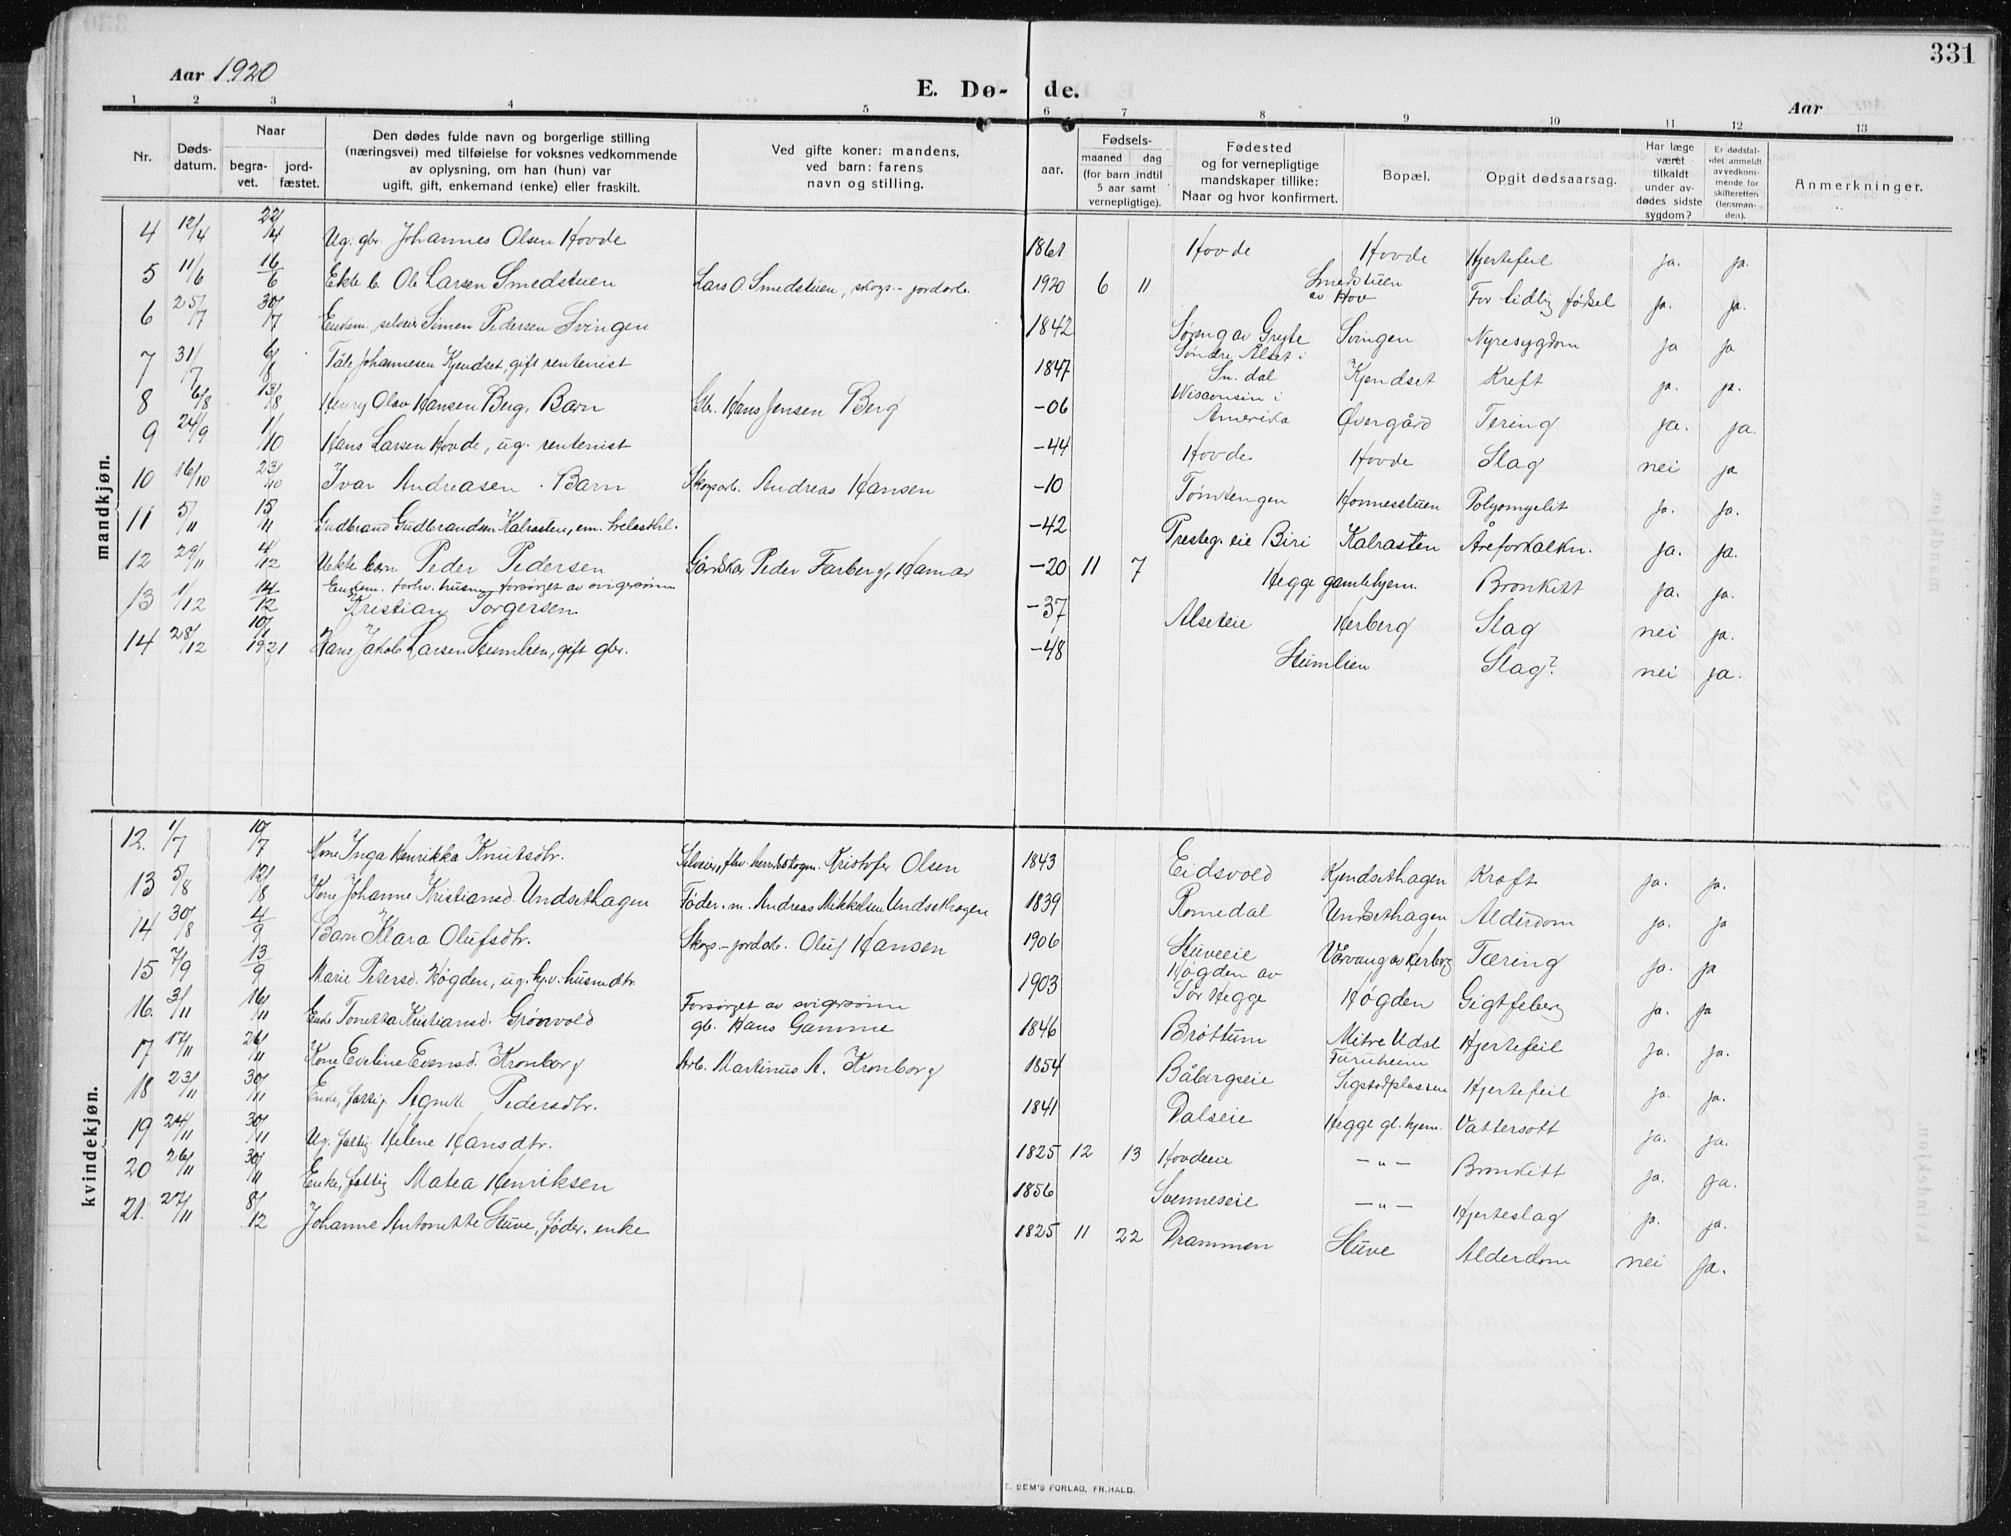 331
Aar 1920
E. Dø- de.
Aar
1 2 3 4 5 6 7 8 9 10 11 12 13
Nr.
Døds-
datum.
Naar
begra-
vet.
jord-
fæstet.
Den dødes fulde navn og borgerlige stilling
(næringsvei) med tilføielse for voksnes vedkommende
av oplysning, om han (hun) var
ugift, gift, enkemand (enke) eller fraskilt.
Ved gifte koner: mandens,
ved barn: farens
navn og stilling.
aar.
Fødsels-
maaned dag
(for barn indtil
5 aar samt
vernepligtige).
Fødested
og for vernepligtige
mandskaper tillike:
Naar og hvor konfirmert.
Bopæl.
Opgit dødsaarsag.
Har læge
været
tilkaldt
under av-
dødes sidste
sygdom?
Er dødsfal-
det anmeldt
av vedkom-
mende for
skifteretten
(lensman-
den).
Anmerkninger.
mandkjøn.
4 12/4 22/4 Ug. gbr. Johannes Olsen Hovde 1861 Hovde Hovde Hjertefeil ja. ja.
5 11/6 16/6 Ekte b. Ole Larsen Smedstuen Lars O. Smedstuen, skogs- jordarb. 1920 6 11 Smedstuen av Hov For tidlig fødsel ja. ja.
6 25/7 30/7 Enkem. selveier Simen Pedersen Svingen 1842 Søreng av Grejte Svingen Nyresygdom ja ja
7 31/7 6/8 Tåle Johannesen Kjendset, gift rentenist 1847 Søndre Alset i Sn. dal Kjendset Kreft ja. ja.
8 6/8 13/8 Henry Olav Hansen Berg, Barn Gbr. Hans Jensen Berg -06 Wisconsin i Amerika Øvergård Tering ja. ja.
9 24/9 1/10 Hans Larsen Hovde, ug. rentenist -44 Hovde Hovde Slag nei ja
10 16/10 23/10 Ivar Andreasen. Barn Skogsarb. Andreas Hansen -10 Tømtengen Honnesstuen Polyomyelit ja. ja.
11 5/11 15/11 Gudbrand Gudbrandsen Kalrasten, em. trelasthl. -42 Presteg. eie Biri Kalrasten Åreforkalkn. ja. ja.
12 29/11 4/12 Uekte barn Peder Pedersen Gårdskar Peder Farberg, Hamar -20 11 7 Hegge gamlehjem. Bronkitt ja. ja.
13 1/12 14/12 Enkem. forhv. husm. forsørget av svigersønn Kristian Torgersen -37 Alseteie Herberg Slag nei ja.
14 28/12 10/1 1921 Hans Jakob Larsen Stumlien, gift gbr. -48 Stumlien Slag? nei ja.
kvindekjøn.
12. 1/7 10/7 Kone Inga Henrikka Knutsdtr. Selveier, fhv. herredskogm. Kristofer Olsen 1843 Eidsvold Kjendsethagen Kræft ja. ja.
13 5/8 12/8 Kone Johanne Kristiansd. Undsethagen Føder. m. Andreas Mikkelsen Undsethagen 1839 Romedal Undsethagen Alderdom ja. ja
14 30/8 4/9 Barn Klara Olufsdtr. Skogs- jordarb. Oluf Hansen 1906 Stuveeie Vårvang av Herberg Tæring ja. ja
15 7/9 13/9 Marie Petersd. Høgden, ug. hjv. husmdtr. 1903 Høgden av Sør Hegge Høgden Gigtfeber ja. ja
16. 3/11 16/11 Enke Tonetta Kristiansd. Grønvold Forsørget av svigersønn gb. Hans Gamme 1846 Brøttum Mitre Udal Hjertefeil ja. ja.
17 17/11 26/11 Kone Eveline Evensd. Kronborg Arb. Martinus A. Kronborg 1854 Båbergseie Furuheim Sigstadplassen Hjertefeil ja. ja.
18 23/11 30/11 Enke, fattig Agnete Pedersdtr. 1841 Dalseie Hegge gl. hjem. Vattersott ja. ja.
19 24/11 30/11 Ug. fattig Helene Hansdtr. 1825 12 13 Hovdeeie -"- Bronkitt ja. ja.
20 26/11 30/11 Enke, fattig Matea Henriksen 1856 Svenneseie -"- Hjerteslag ja. ja.
21. 27/11 8/12 Johanne Antonette Stuve, føder. enke 1825 11 22 Drammen Stuve Alderdom nei ja.
E. SEM'S FORLAG, FR.HALD.